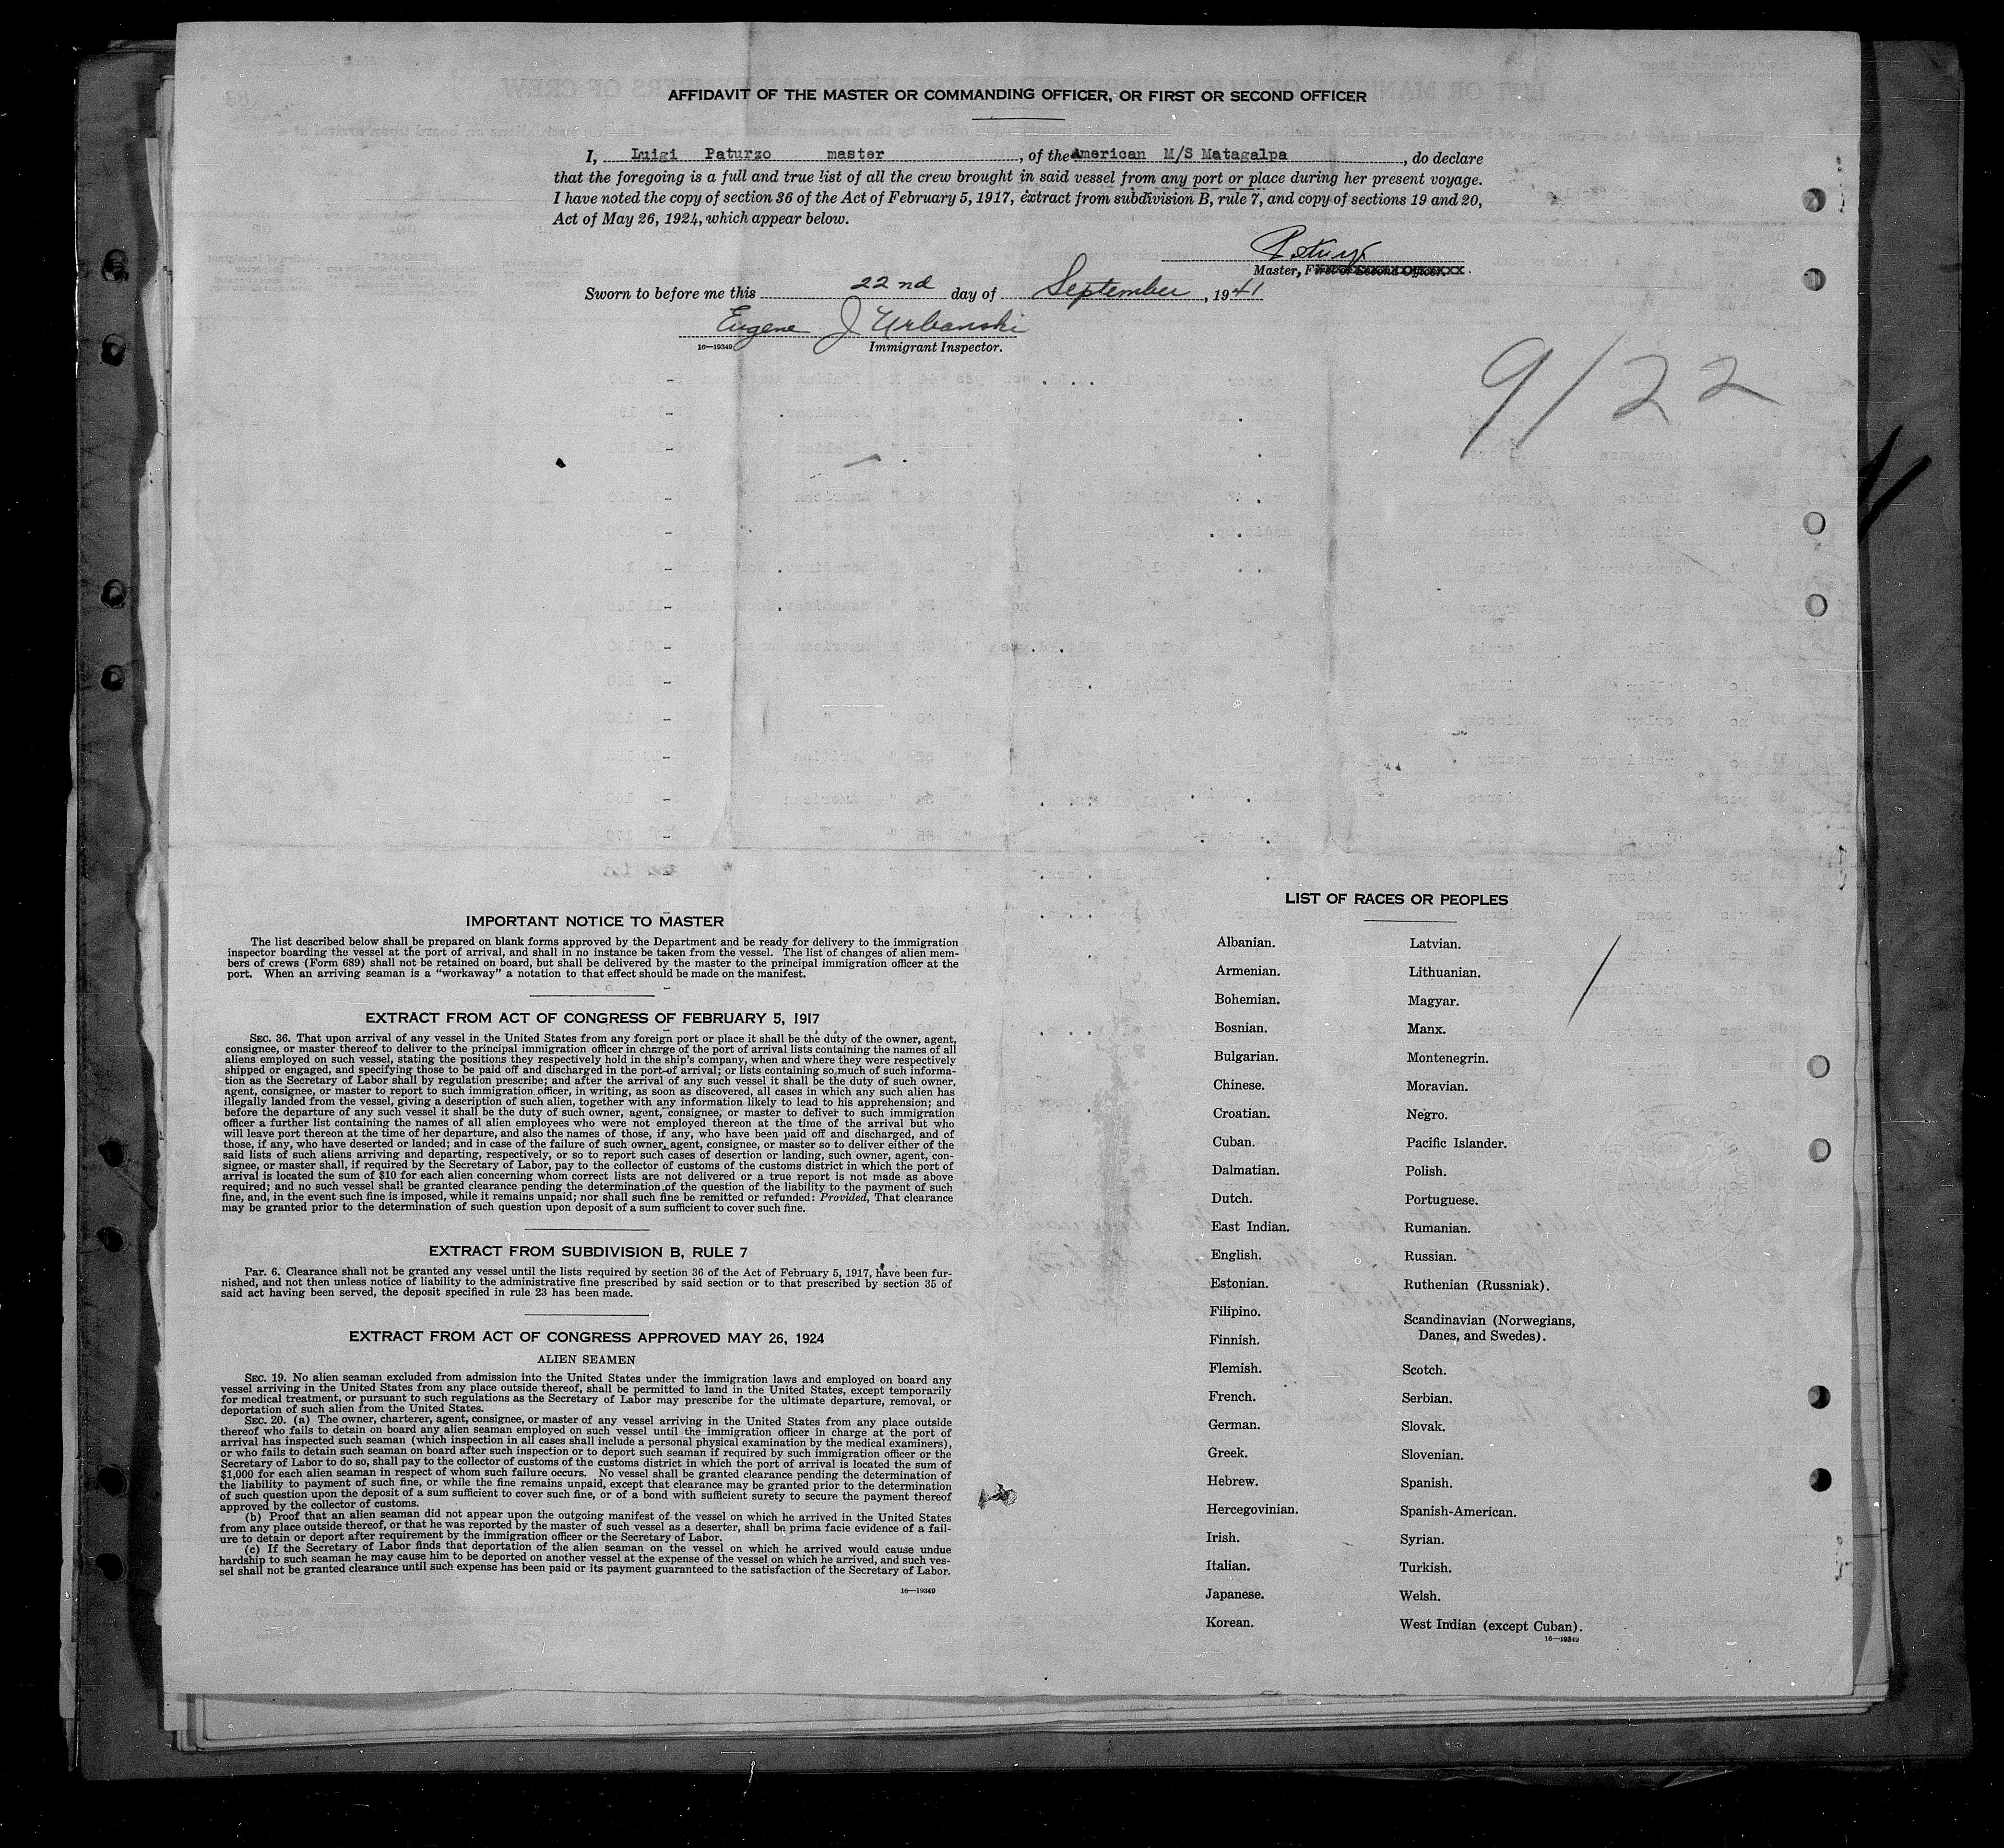 AFFIDAVIT OF THE MASTER OR COMMANDING OFFICER, OR FIRST OR SECOND OFFICER
I, Luigi Paturzo master, of the American M/S Matagalpa, do declare
that the foregoing is a full and true list of all the crew brought in said vessel from any port or place during her present voyage.
I have noted the copy of section 36 of the Act of February 5, 1917, extract from subdivision B, rule 7, and copy of sections 19 and 20,
Act of May 26, 1924, which appear below.
Master, First or Second Officer.
Sworn to before me this 22nd day of September, 1941
Eugene J Urbanski
16—19349 Immigrant Inspector.
9/22
IMPORTANT NOTICE TO MASTER
The list described below shall be prepared on blank forms approved by the Department and be ready for delivery to the immigration
inspector boarding the vessel at the port of arrival, and shall in no instance be taken from the vessel. The list of changes of alien mem-
bers of crews (Form 689) shall not be retained on board, but shall be delivered by the master to the principal immigration officer at the
port. When an arriving seaman is a "workaway" a notation to that effect should be made on the manifest.
EXTRACT FROM ACT OF CONGRESS OF FEBRUARY 5, 1917
SEC. 36. That upon arrival of any vessel in the United States from any foreign port or place it shall be the duty of the owner, agent,
consignee, or master thereof to deliver to the principal immigration officer in charge of the port of arrival lists containing the names of all
aliens employed on such vessel, stating the positions they respectively hold in the ship's company, when and where they were respectively
shipped or engaged, and specifying those to be paid off and discharged in the port of arrival; or lists containing so much of such informa-
tion as the Secretary of Labor shall by regulation prescribe; and after the arrival of any such vessel it shall be the duty of such owner,
agent, consignee, or master to report to such immigration officer, in writing, as soon as discovered, all cases in which any such alien has
illegally landed from the vessel, giving a description of such alien, together with any information likely to lead to his apprehension; and
before the departure of any such vessel it shall be the duty of such owner, agent, consignee, or master to deliver to such immigration
officer a further list containing the names of all alien employees who were not employed thereon at the time of the arrival but who
will leave port thereon at the time of her departure, and also the names of those, if any, who have been paid off and discharged, and of
those, if any, who have deserted or landed; and in case of the failure of such owner, agent, consignee, or master so to deliver either of the
said lists of such aliens arriving and departing, respectively, or so to report such cases of desertion or landing, such owner, agent, con-
signee, or master shall, if required by the Secretary of Labor, pay to the collector of customs of the customs district in which the port of
arrival is located the sum of $10 for each alien concerning whom correct lists are not delivered or a true report is not made as above
required; and no such vessel shall be granted clearance pending the determination of the question of the liability to the payment of such
fine, and, in the event such fine is imposed, while it remains unpaid; nor shall such fine be remitted or refunded: Provided, That clearance
may be granted prior to the determination of such question upon deposit of a sum sufficient to cover such fine.
EXTRACT FROM SUBDIVISION B, RULE 7
Par. 6. Clearance shall not be granted any vessel until the lists required by section 36 of the Act of February 5, 1917, have been fur-
nished, and not then unless notice of liability to the administrative fine prescribed by said section or to that prescribed by section 35 of
said act having been served, the deposit specified in rule 23 has been made.
EXTRACT FROM ACT OF CONGRESS APPROVED MAY 26, 1924
ALIEN SEAMEN
SEC. 19. No alien seaman excluded from admission into the United States under the immigration laws and employed on board any
vessel arriving in the United States from any place outside thereof, shall be permitted to land in the United States, except temporarily
for medical treatment, or pursuant to such regulations as the Secretary of Labor may prescribe for the ultimate departure, removal, or
deportation of such alien from the United States.
SEC. 20. (a) The owner, charterer, agent, consignee, or master of any vessel arriving in the United States from any place outside
thereof who fails to detain on board any alien seaman employed on such vessel until the immigration officer in charge at the port of
arrival has inspected such seaman (which inspection in all cases shall include a personal physical examination by the medical examiners),
or who fails to detain such seaman on board after such inspection or to deport such seaman if required by such immigration officer or the
Secretary of Labor to do so, shall pay to the collector of customs of the customs district in which the port of arrival is located the sum of
$1,000 for each alien seaman in respect of whom such failure occurs. No vessel shall be granted clearance pending the determination of
the liability to payment of such fine, or while the fine remains unpaid, except that clearance may be granted prior to the determination
of such question upon the deposit of a sum sufficient to cover such fine, or of a bond with sufficient surety to secure the payment thereof
approved by the collector of customs.
(b) Proof that an alien seaman did not appear upon the outgoing manifest of the vessel on which he arrived in the United States
from any place outside thereof, or that he was reported by the master of such vessel as a deserter, shall be prima facie evidence of a fail-
ure to detain or deport after requirement by the immigration officer or the Secretary of Labor.
(c) If the Secretary of Labor finds that deportation of the alien seaman on the vessel on which he arrived would cause undue
hardship to such seaman he may cause him to be deported on another vessel at the expense of the vessel on which he arrived, and such ves-
sel shall not be granted clearance until such expense has been paid or its payment guaranteed to the satisfaction of the Secretary of Labor.
16—19349
LIST OF RACES OR PEOPLES
Albanian.
Armenian.
Bohemian.
Bosnian.
Bulgarian.
Chinese.
Croatian.
Cuban.
Dalmatian.
Dutch.
East Indian.
English.
Estonian.
Filipino.
Finnish.
Flemish.
French.
German.
Greek.
Hebrew.
Hercegovinian.
Irish.
Italian.
Japanese.
Korean.
Latvian.
Lithuanian.
Magyar.
Manx.
Montenegrin.
Moravian.
Negro.
Pacific Islander.
Polish.
Portuguese.
Rumanian.
Russian.
Ruthenian (Russniak).
Scandinavian (Norwegians,
Danes, and Swedes).
Scotch.
Serbian.
Slovak.
Slovenian.
Spanish.
Spanish-American.
Syrian.
Turkish.
Welsh.
West Indian (except Cuban).
16—19349